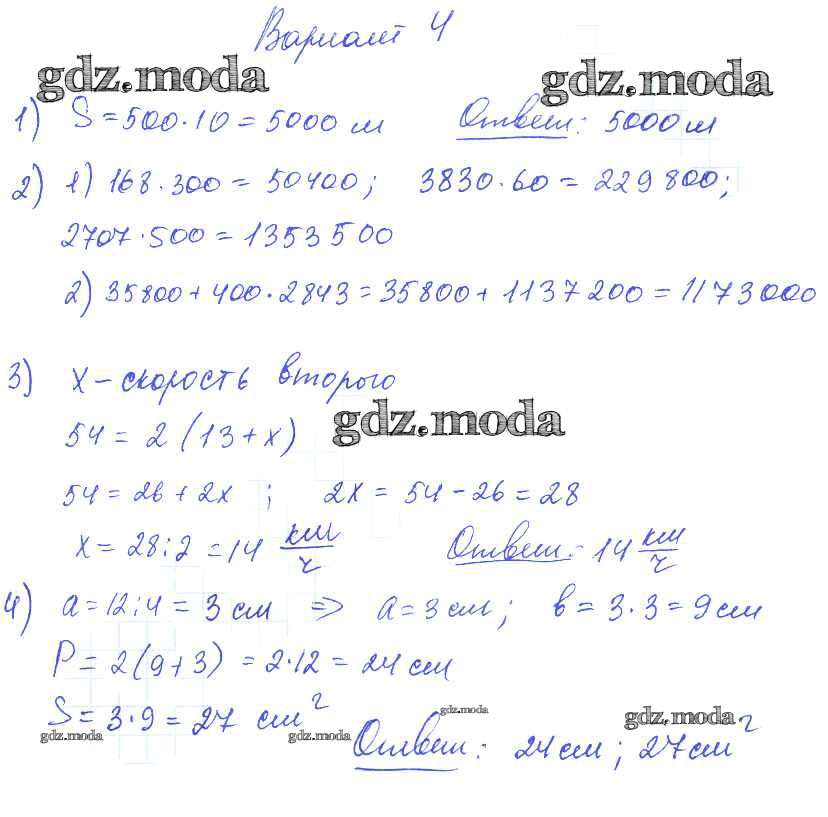 Вариант 4
gdz.moda gdz.moda
1) S = 500·10 = 5000 м Ответ: 5000 м
2) 1) 168·300 = 50400; 3830·60 = 229800;
2707·500 = 1353500
2) 35800 + 400·2843 = 35800 + 1137200 = 1173000
3) x – скорость второго
gdz.moda
54 = 2 (13 + x)
54 = 26 + 2x ; 2x = 54 – 26 = 28
x = 28:2 = 14 км/ч Ответ: 14 км/ч
4) a = 12:4 = 3 см => a = 3 см; в = 3·3 = 9 см
P = 2(9+3) = 2·12 = 24 см
S = 3·9 = 27 см²
gdz.moda gdz.moda gdz.moda gdz.moda
Ответ: 24 см; 27 см²